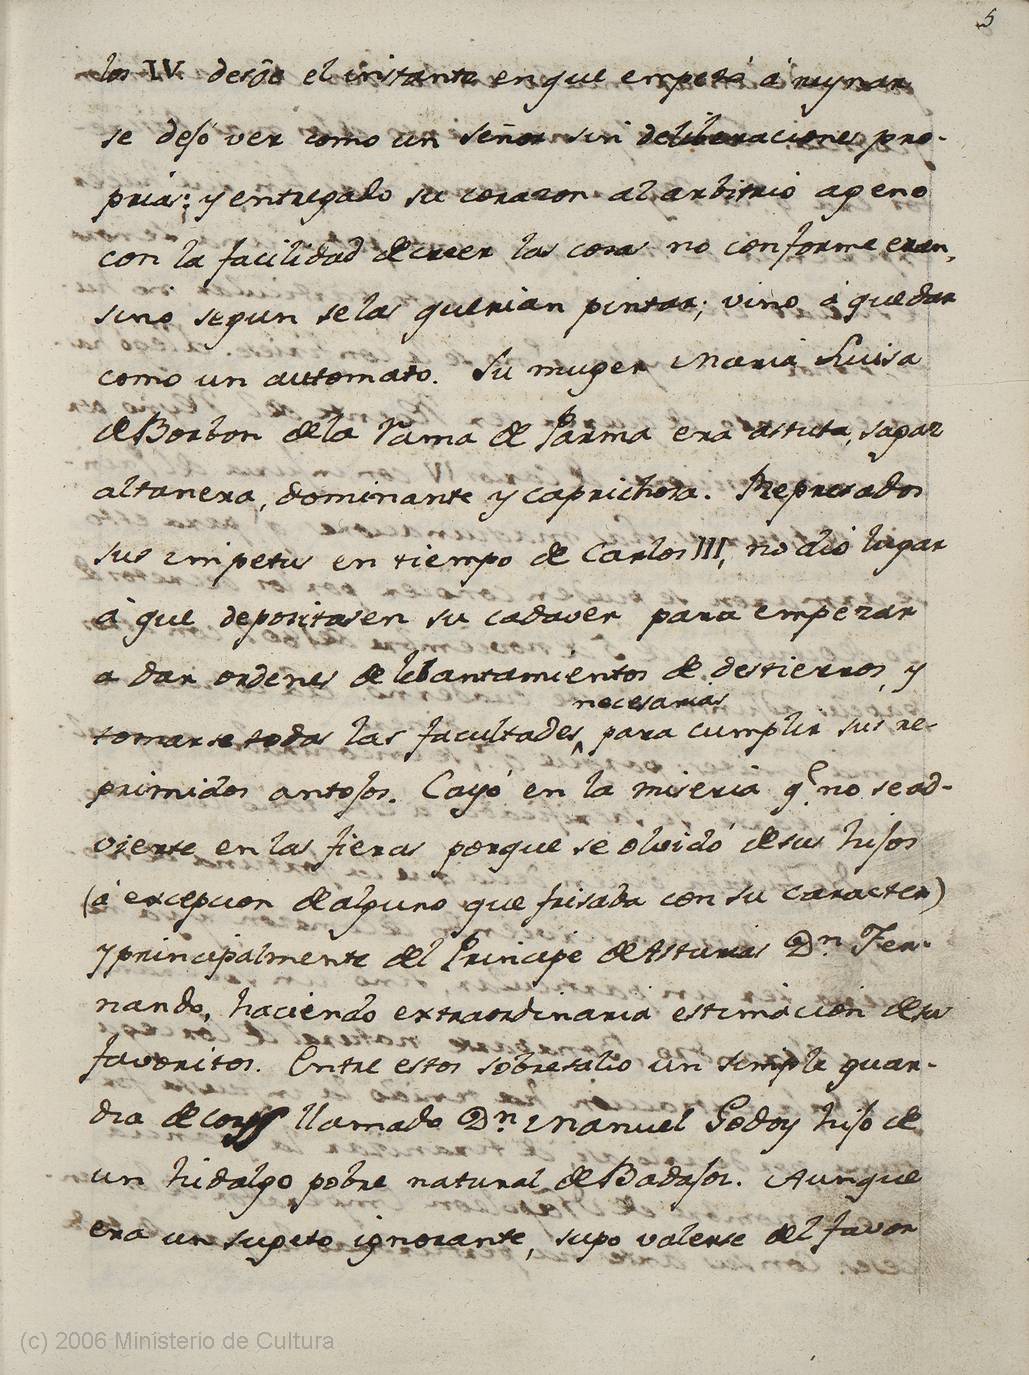 5
los IV desde el instante en que empezó á reynar
se dejó ver como un señor sin deliberaciones pro-
prias: y entregado su corazon al arbitrio ageno
con la facilidad de creer las cosas no conforme eran,
sino segun se las querian pintar; vino á quedar
como un automato. Su muger Maria Luisa
de Borbon de la Rama de Parma era astuta, sagaz
altanera, dominante y caprichosa. Represados
sus impetus en tiempo de Carlos III, no dio lugar
á que depositasen su cadaver para empezar
a dar ordenes de lebantamientos de destierros, y
necesarias
tomarse todas las facultades ^ para cumplir sus re-
primidos antojos. Cayó en la miseria q.e no se ad-
vierte en las fieras porque se olvidó de sus hijos
(á excepcion de alguno que frisaba con su caracter)
y principalmente del Principe de Asturias Dn. Fer-
nando, haciendo extraordinaria estimacion de su
favoritos. Entre estos sobresalio un simple guar-
dia de corps llamado Dn. Manuel Godoy hijo de
un hidalgo pobre natural de Badajoz. Aunque
era un sugeto ignorante, supo valerse del favor
(c) 2006 Ministerio de Cultura